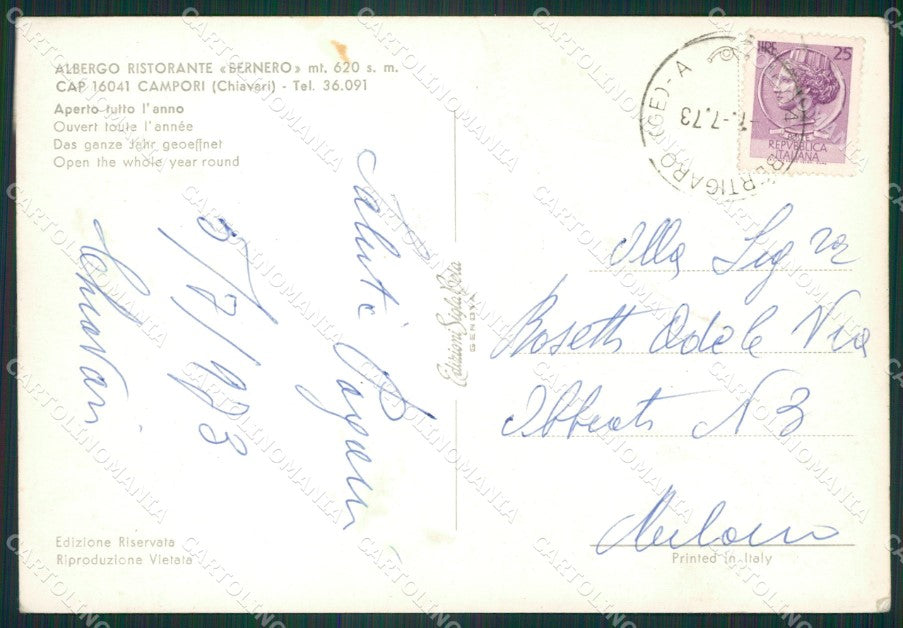 ALBERGO RISTORANTE «BERNERO» mt. 620 s. m.
CAP 16041 CAMPORI (Chiavari) - Tel. 36.091
Aperto tutto l'anno
Ouvert toute l'année
Das ganze Jahr geoeffnet
Open the whole year round
Chiavari
5/7/1973
Saluti Pagani
Edizioni Sigla Beta
GENOVA
LIRE 25
POSTE
REPVBBLICA
ITALIANA
BERTIGARO (GE) - A
-7.73
Alla Sig ra
Rosetti Odele Via
Abbiati N 3
Milano
Edizione Riservata
Riproduzione Vietata
Printed in Italy
CARTOLINOMANIA